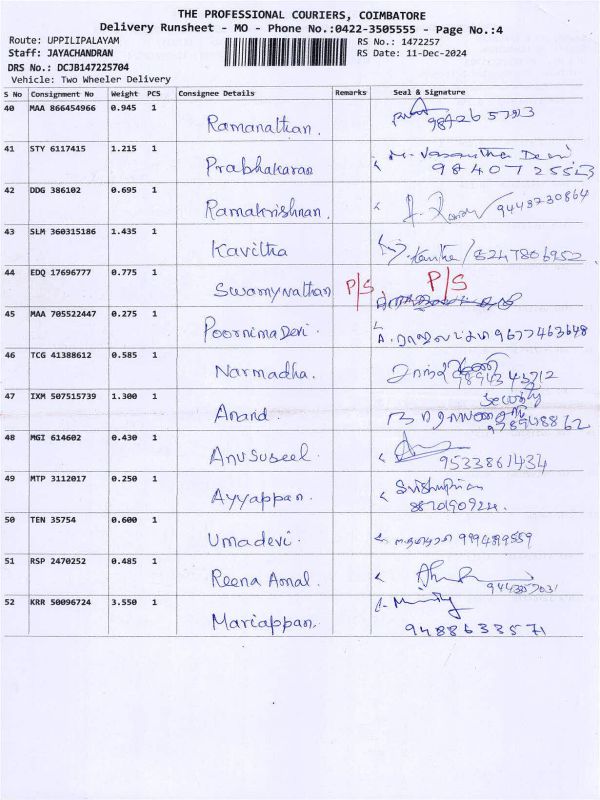 THE PROFESSIONAL COURIERS, COIMBATORE
Delivery Runsheet - MO - Phone No.:0422-3505555 - Page No.:4
Route: UPPILIPALAYAM
RS No.: 1472257
Staff: JAYACHANDRAN
RS Date: 11-Dec-2024
DRS No.: DCJB147225704
Vehicle: Two Wheeler Delivery
S No Consignment No Weight PCS Consignee Details Remarks Seal & Signature
40 MAA 866454966 0.945 1 Ramanathan. 984265723
41 STY 6117415 1.215 1 Prabhakaran M. Vasantha Devi
9840725523
42 DDG 386102 0.695 1 Ramakrishnan. 9443730864
43 SLM 360315186 1.435 1 Kavitha 8247806952
44 EDQ 17696777 0.775 1 Swamynathan P/S P/S
45 MAA 705522447 0.275 1 Poornima Devi. 9677463648
46 TCG 41388612 0.585 1 Narmadha. 9894343712
47 IXM 507515739 1.300 1 Anand. Security
48 MGI 614602 0.430 1 Anususeel. 9533861434
49 MTP 3112017 0.250 1 Ayyappan.
50 TEN 35754 0.600 1 Umadevi. 9994899559
51 RSP 2470252 0.485 1 Reena Amal.
52 KRR 50096724 3.550 1 Mariappan.
9488633571